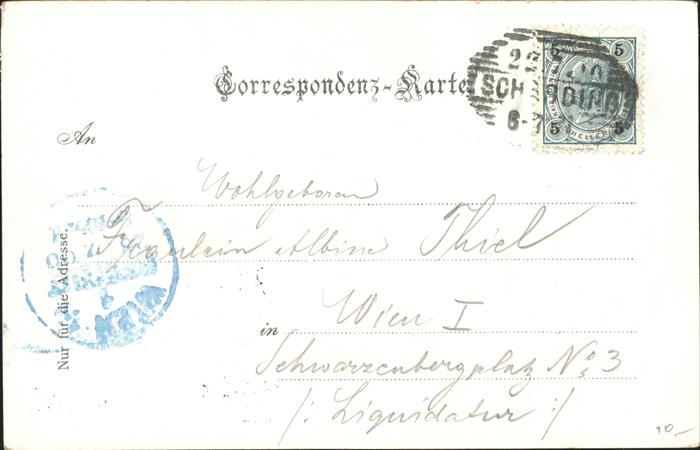 Correspondenz-Karte
5 5
22
SCHÄRDING
6-7
HELLER
5 5
An
Wohlgeboren
Fräulein Albine Thiel
Nur für die Adresse.
WIEN
in Wien I
Schwarzenbergplatz No 3
/: Liquidatur :/
90.-